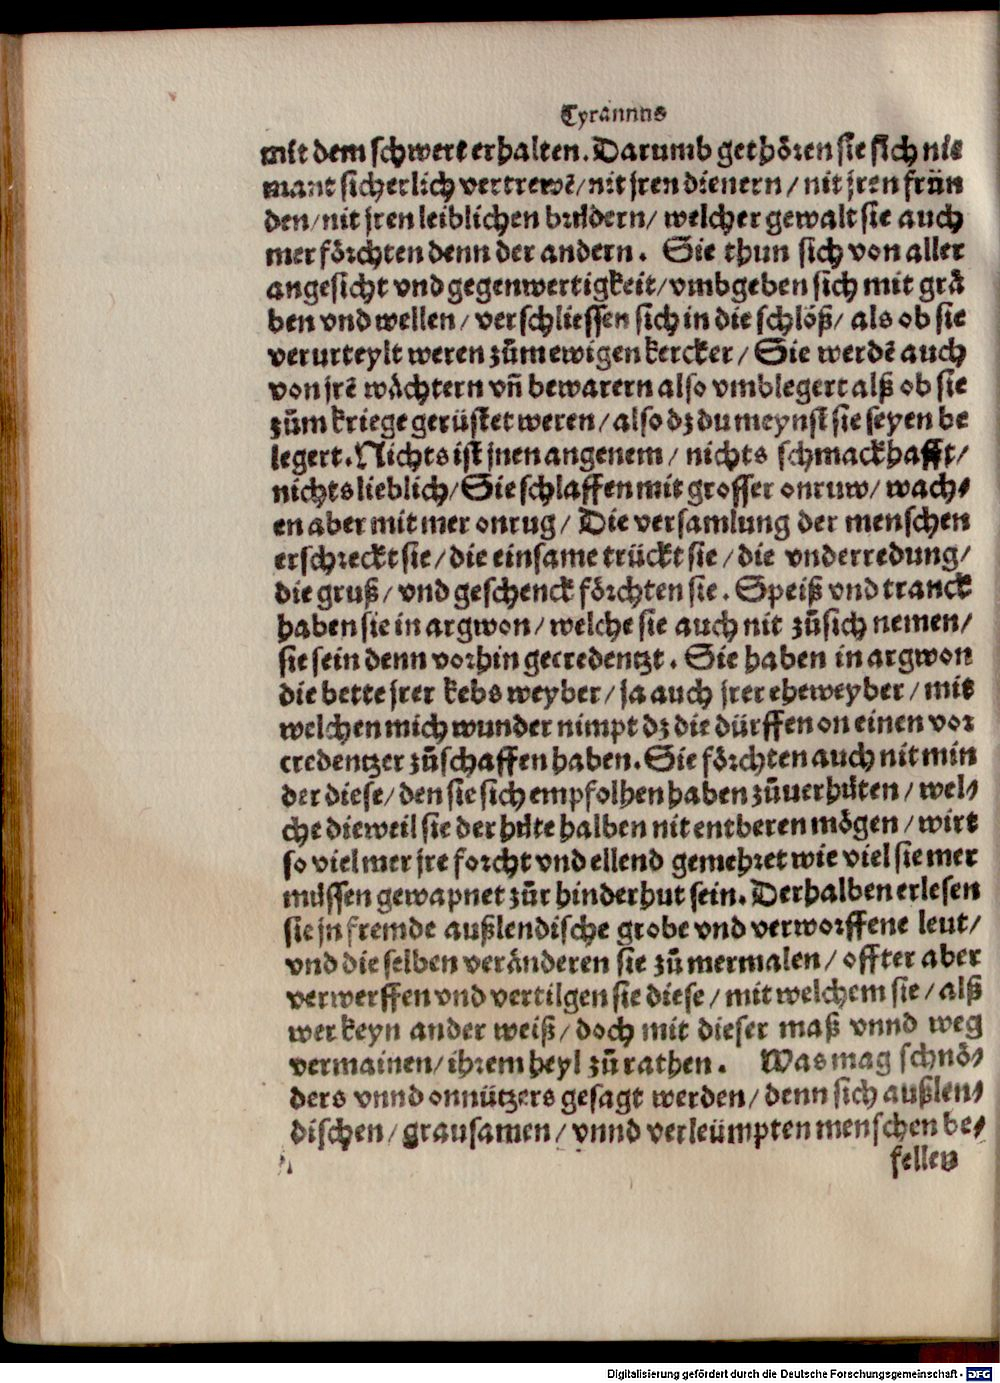 Tyrannus
mit dem schwert erhalten. Darumb gethören sie sich nie
mant sicherlich vertrewē/ nit jren dienern / nit jren frün
den/ nit jren leiblichen brüdern/ welcher gewalt sie auch
mer förchten denn der andern. Sie thun sich von aller
angesicht vnd gegenwertigkeit/ vmbgeben sich mit grä
ben vnd wellen / verschliessen sich in die schlöß/ als ob sie
verurteylt weren zům ewigen kercker / Sie werdē auch
von jrē wächtern vñ bewarern also vmblegert alß ob sie
zům kriege gerüstet weren / also dz du meynst sie seyen be
legert. Nichts ist jnen angenem / nichts schmackhafft/
nichts lieblich/ Sie schlaffen mit grosser onruw/ wach⸗
en aber mit mer onrug / Die versamlung der menschen
erschreckt sie / die einsame trückt sie / die vnderredung/
die gruß / vnd geschenck förchten sie. Speiß vnd tranck
haben sie in argwon / welche sie auch nit zůsich nemen/
sie sein denn vorhin gecredentzt. Sie haben in argwon
die bette jrer kebs weyber / ja auch jrer eheweyber / mit
welchen mich wunder nimpt dz die dürffen on einen vor
credentzer zůschaffen haben. Sie förchten auch nit min
der diese / den sie sich empfolhen haben zůuerhüten / wel⸗
che dieweil sie der hüte halben nit entberen mögen / wirt
so viel mer jre forcht vnd ellend gemehret wie viel sie mer
müssen gewapnet zůr hinderhut sein. Derhalben erlesen
sie jn fremde außlendische grobe vnd verworffene leut/
vnd die selben veränderen sie zů mermalen / offter aber
verwerffen vnd vertilgen sie diese / mit welchem sie / alß
wer keyn ander weiß / doch mit dieser maß vnnd weg
vermainen/ ihrem heyl zů rathen. Was mag schnö⸗
ders vnnd onnützers gesagt werden / denn sich außlen⸗
dischen / grausamen / vnnd verleümpten menschen be⸗
fellen
Digitalisierung gefördert durch die Deutsche Forschungsgemeinschaft - DFG